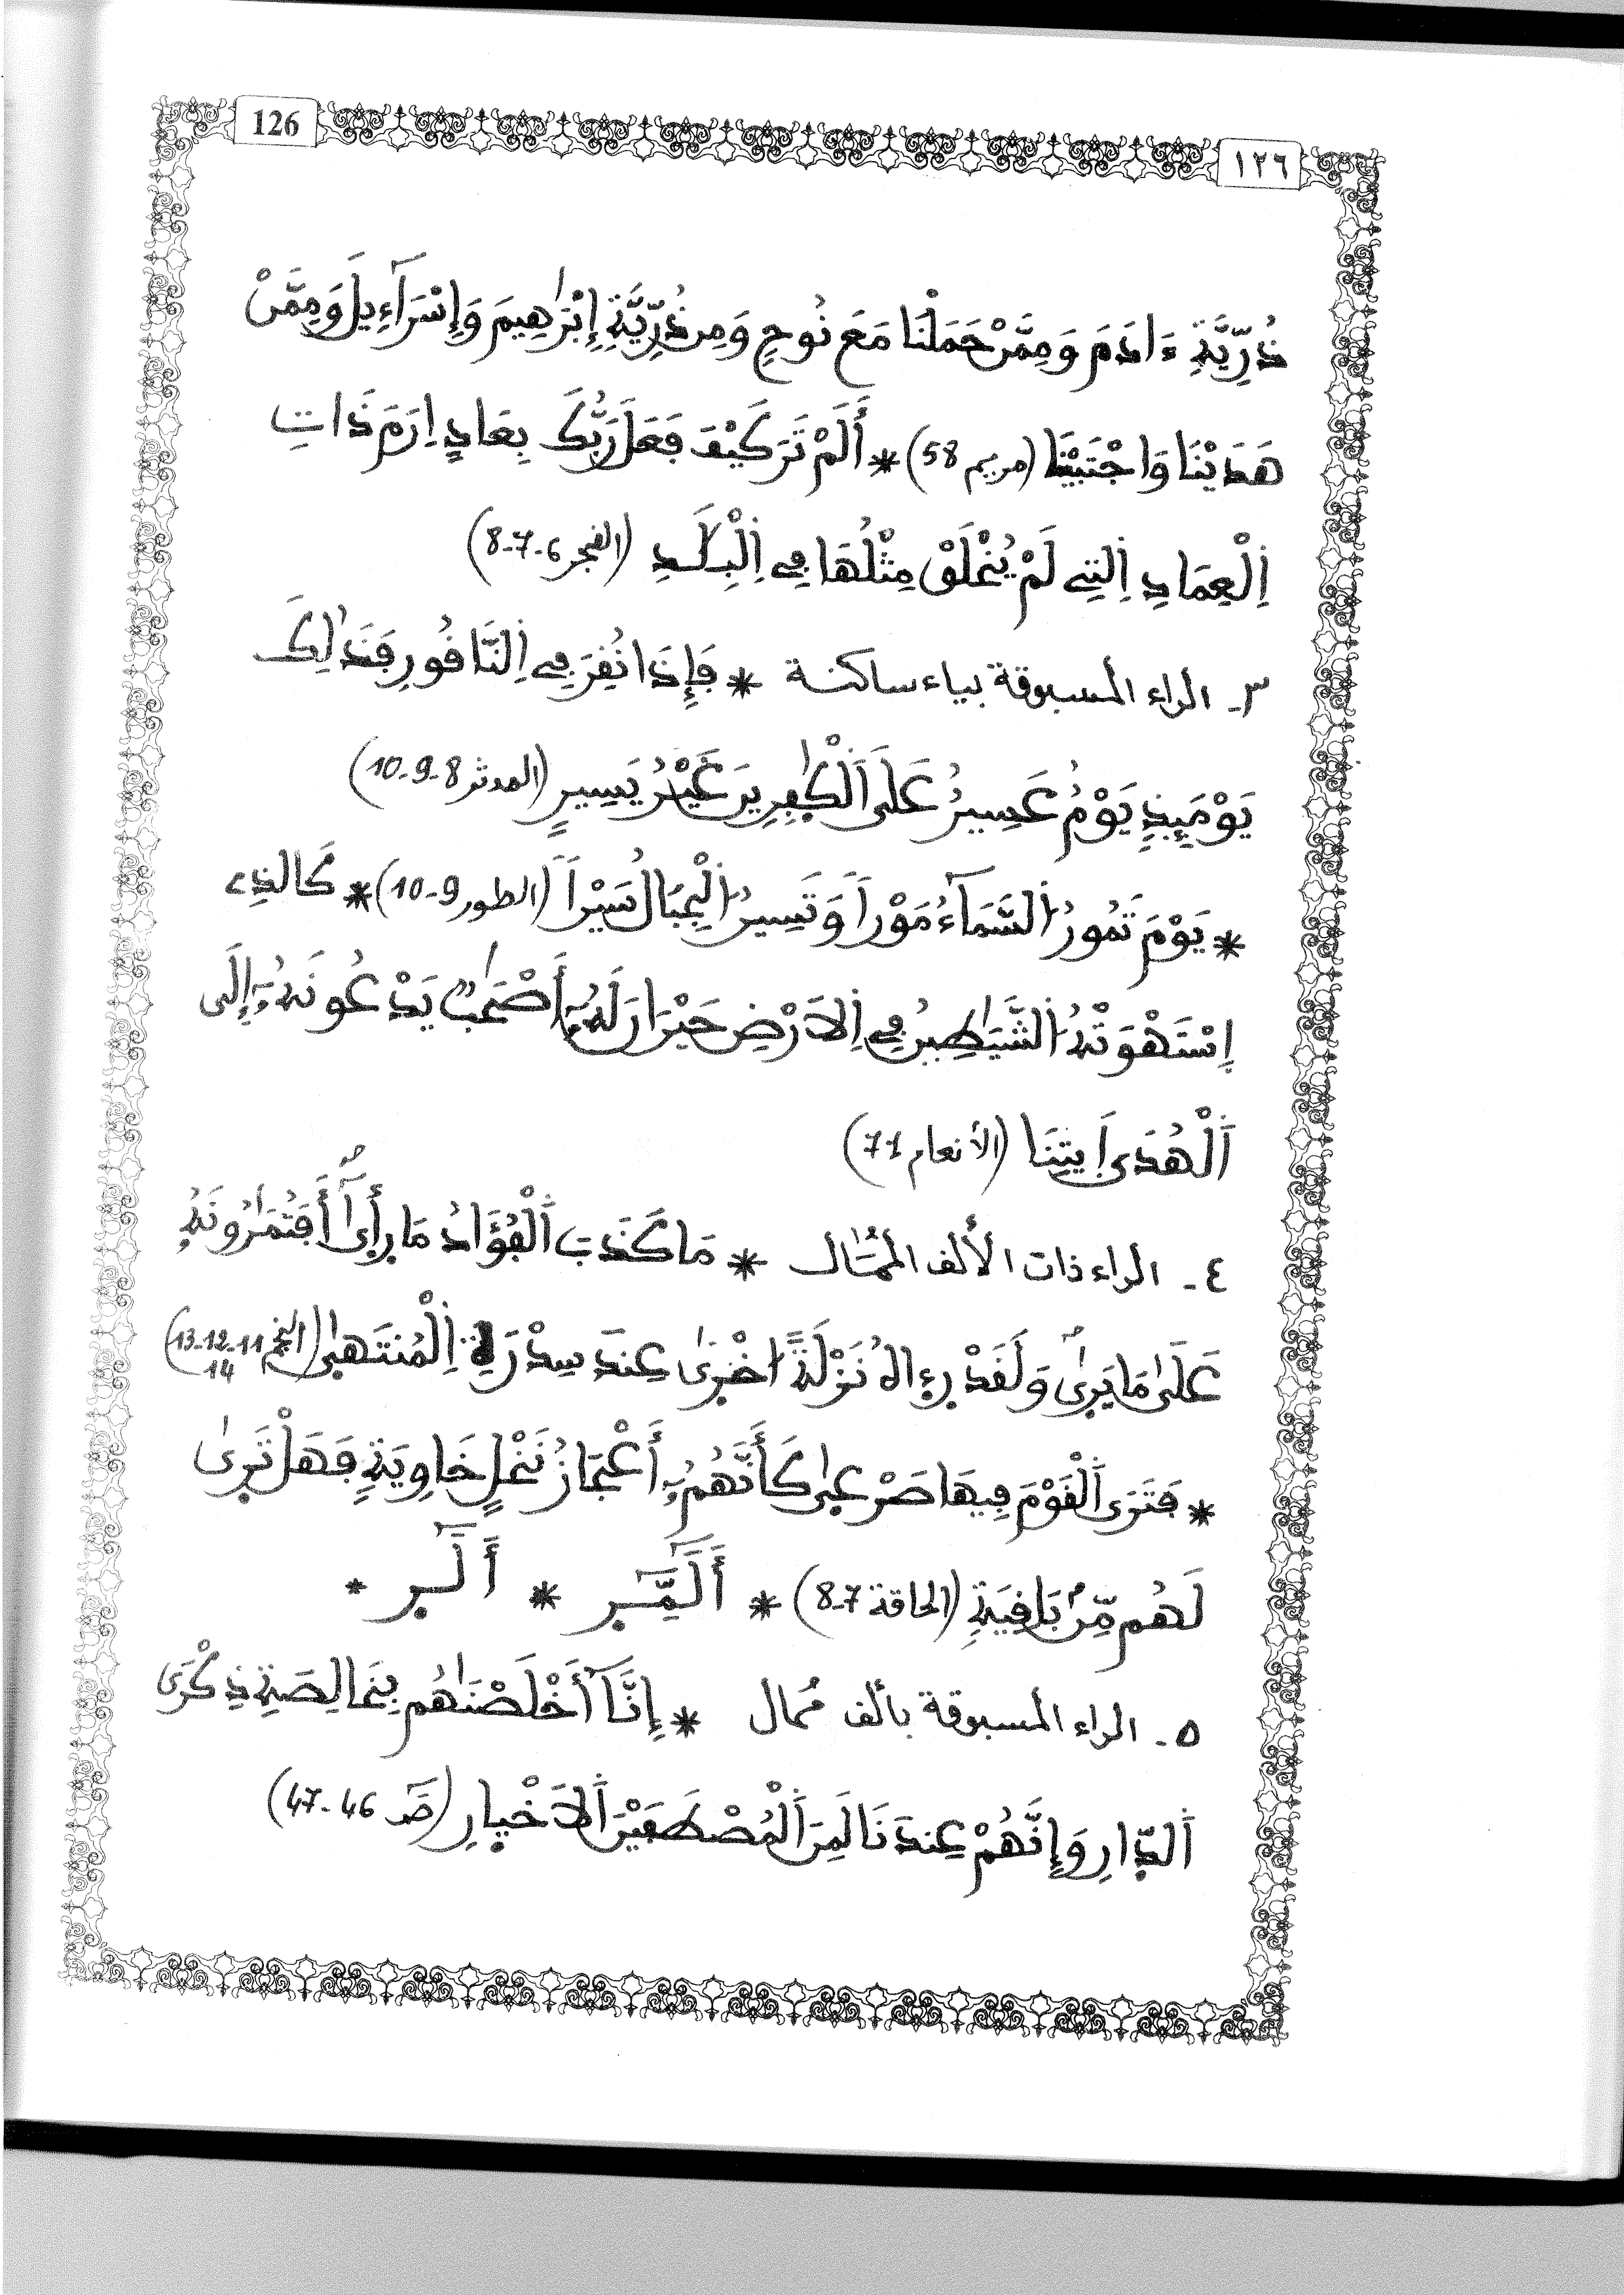 126
١٢٦
ذُرِّيَّةِ ءَادَمَ وَمِمَّنْ حَمَلْنَا مَعَ نُوحٍ وَمِن ذُرِّيَّةِ إِبْرَٰهِيمَ وَإِسْرَآءِيلَ وَمِمَّنْ
هَدَيْنَا وَاجْتَبَيْنَا (مريم 58) * أَلَمْ تَرَ كَيْفَ فَعَلَ رَبُّكَ بِعَادٍ اِرَمَ ذَاتِ
اِ۬لْعِمَادِ اِ۬لتِے لَمْ يُخْلَقْ مِثْلُهَا فِے اِ۬لْبِلَٰدِ (الفجر 6-7-8)
٣- الراء المسبوقة بياء ساكنة * فَإِذَا نُقِرَ فِے اِ۬لنَّاقُورِ فَذَٰلِكَ
يَوْمَئِذٍ يَوْمٌ عَسِيرٌ عَلَى اَ۬لْكَٰفِرِينَ غَيْرُ يَسِيرٍ (المدثر 8-9-10)
* يَوْمَ تَمُورُ اُ۬لسَّمَآءُ مَوْراً وَتَسِيرُ اُ۬لْجِبَالُ سَيْراً (الطور 9-10) * كَالذِے
اِ۪سْتَهْوَتْهُ اُ۬لشَّيَٰطِينُ فِے اِ۬لَارْضِ حَيْرَانَ لَهُۥٓ أَصْحَٰبٌ يَدْعُونَهُۥٓ إِلَى
اَ۬لْهُدَى اَ۪يتِنَا (الأنعام 71)
٤- الراء ذات الألف الممال * مَا كَذَبَ اَ۬لْفُؤَادُ مَا رَأ۪ىٰٓ أَفَتُمَٰرُونَهُۥ
عَلَىٰ مَا يَر۪ىٰ وَلَقَدْ رَء۪اهُ نَزْلَةً اُخْر۪ىٰ عِندَ سِدْرَةِ اِ۬لْمُنتَه۪ىٰ (النجم 11-12-13-14)
* فَتَرَى اَ۬لْقَوْمَ فِيهَا صَرْع۪ىٰ كَأَنَّهُمُۥٓ أَعْجَازُ نَخْلٍ خَاوِيَةٍ فَهَلْ تَر۪ىٰ
لَهُم مِّنۢ بَاقِيَةٍ (الحاقة 7-8) * أَلَٓمِّٓر۪ * أَلَٓر۪ *
٥- الراء المسبوقة بألف ممال * إِنَّآ أَخْلَصْنَٰهُم بِخَالِصَةِ ذِكْرَى
اَ۬لدّ۪ارِ وَإِنَّهُمْ عِندَنَا لَمِنَ اَ۬لْمُصْطَفَيْنَ اَ۬لَاخْي۪ارِ (صٓ 46-47)